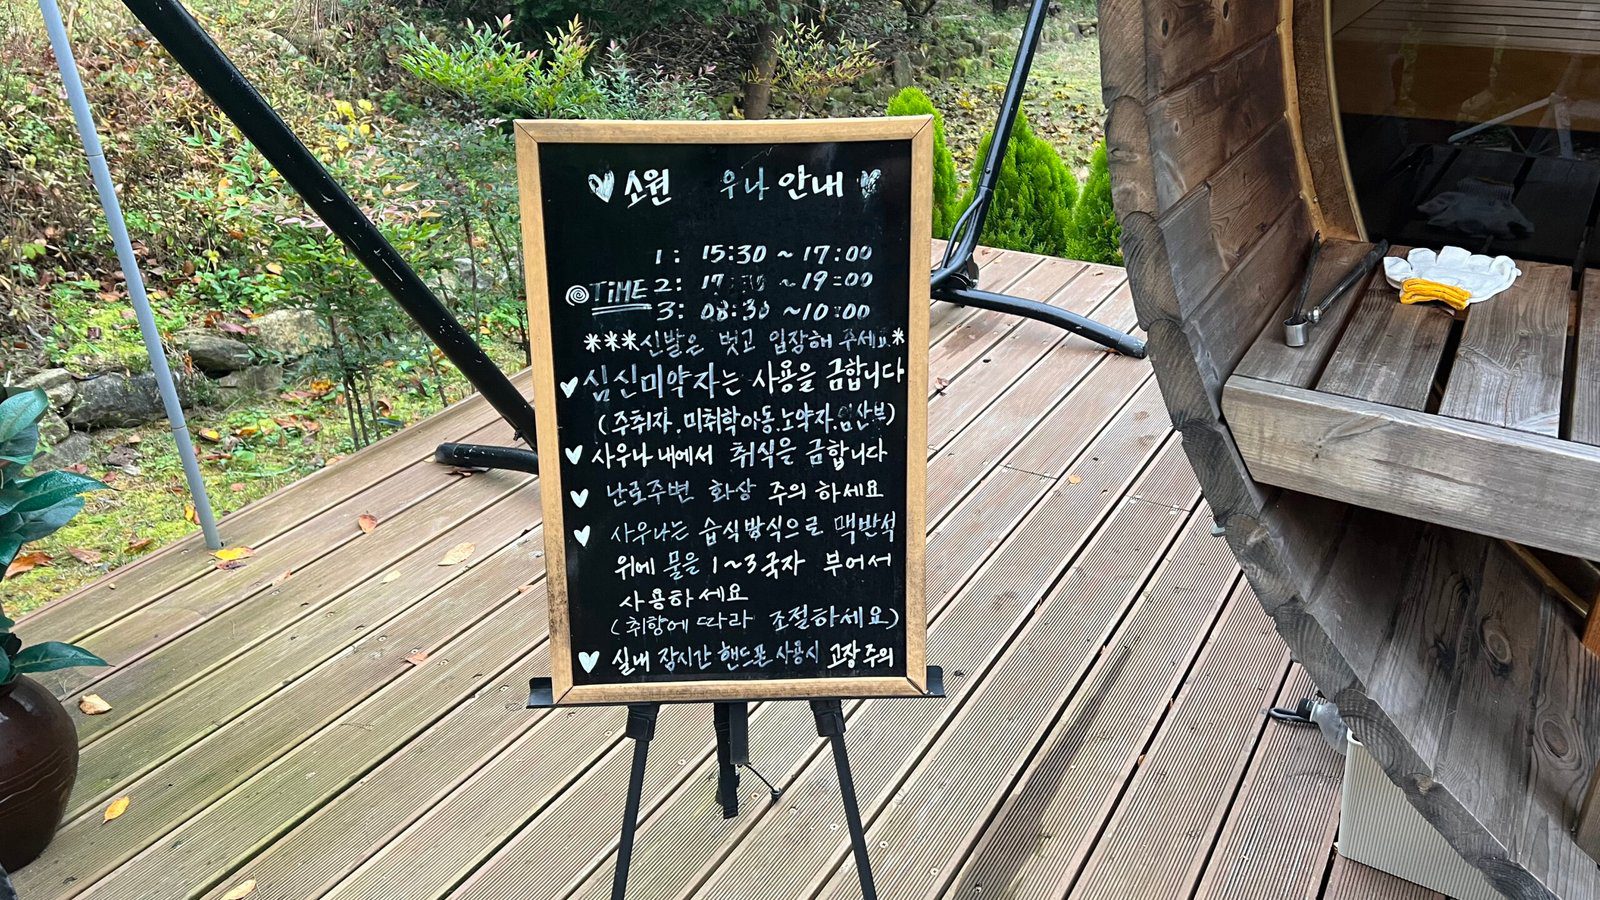 소원 우나 안내
1: 15:30 ~ 17:00
TiME 2: ~ 19:00
3: 08:30 ~ 10:00
***신발은 벗고 입장해 주세요*
심신미약자는 사용을 금합니다
(주취자.미취학아동.노약자.임산부)
사우나 내에서 취식을 금합니다
난로주변 화상 주의 하세요
사우나는 습식방식으로 맥반석
위에 물을 1~3국자 부어서
사용하세요
(취향에 따라 조절하세요)
실내 잠시간 핸드폰 사용시 고장주의